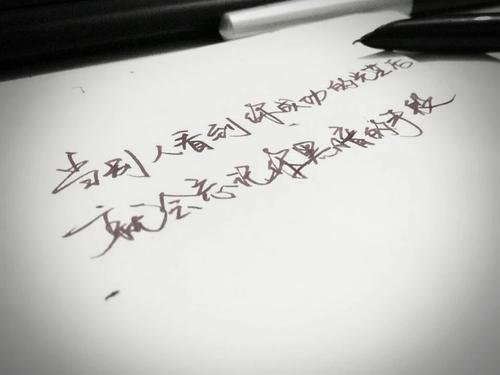 当别人看到你成功的光芒后
就会忘记你黑暗的手段